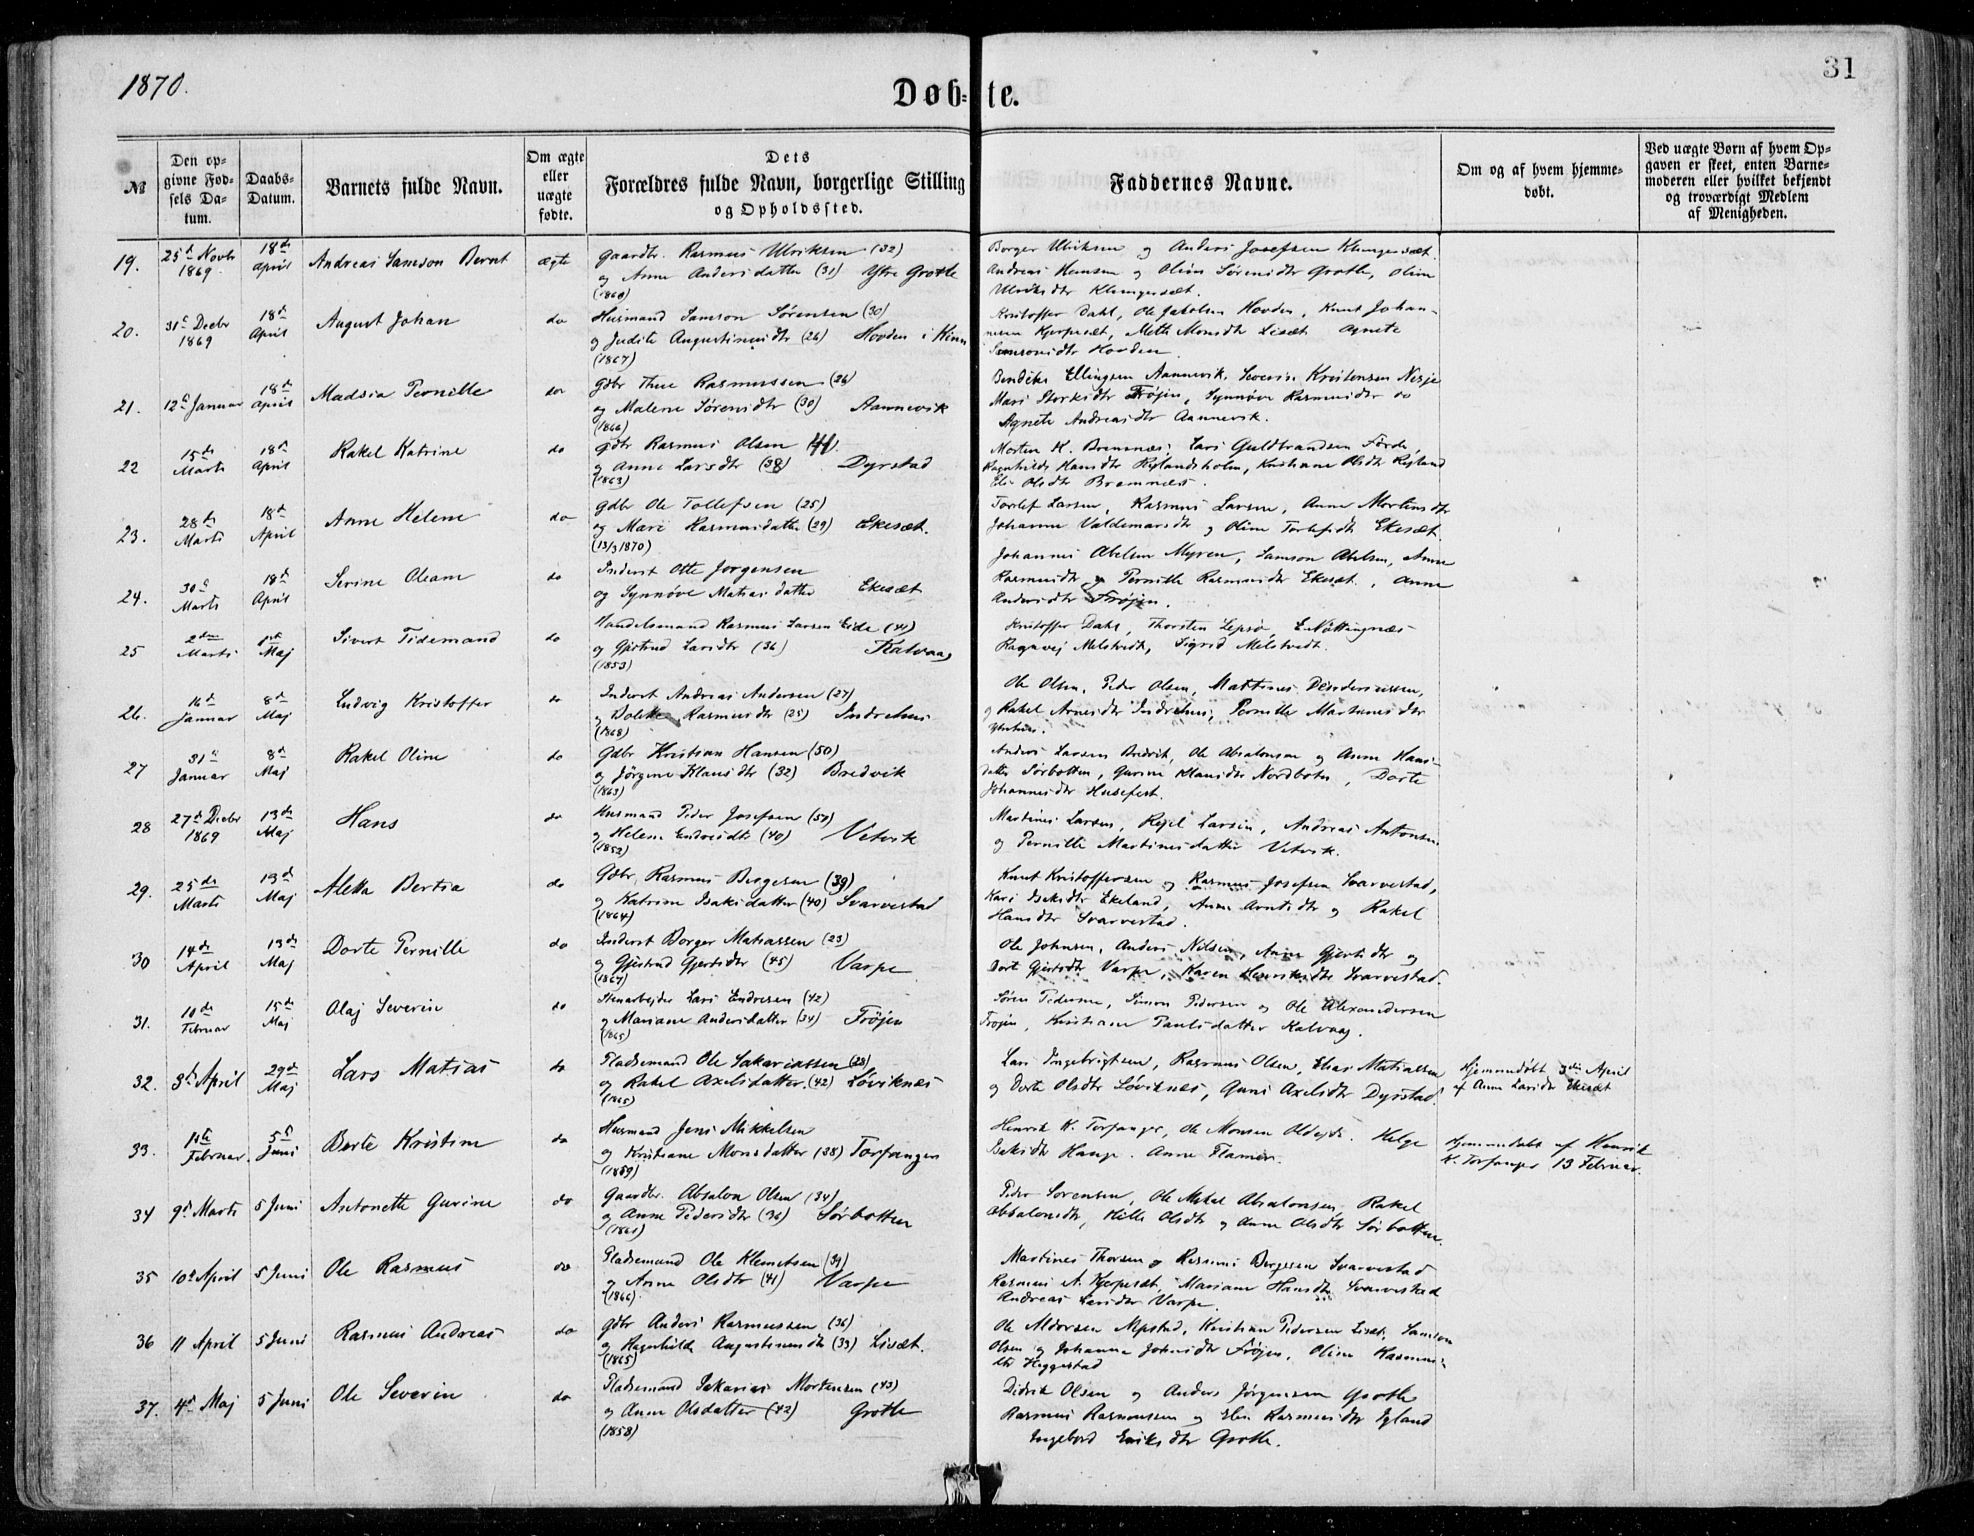 1870.
Døb-te.
31
№
Den opgivne Fødsels Datum.
Daabs-Datum.
Barnets fulde Navn.
Om ægte eller uægte fødte.
Dets Forældres fulde Navn, borgerlige Stilling og Opholdssted.
Faddernes Navne.
Om og af hvem hjemmedøbt.
Ved uægte Børn af hvem Opgaven er skeet, enten Barnemoderen eller hvilket bekjendt og troværdigt Medlem af Menigheden.
19. 25de Novbr 1869 18de April Andreas Samson Bernt ægte Gaardbr. Rasmus Ulriksen (32)
og Anne Andersdatter (31) Ytre Grotle
Borger Ulriksen og Anders Josefsen Klungersæt.
Andreas Hansen og Oline Sørensdtr Grotle, Oline
Ulriksdtr Klungersæt.
20. 31te Decbr 1869 18de April August Johan do Husmand Samson Sørensen (30)
og Judite Augustinusdtr (26) Hovden i Kinn
(1867)
Kristoffer Dahl, Ole Jakobsen Hovden, Knut Johan-
nesen Kjerpesæt, Mette Monsdtr Lisæt Agnete
Samsonsdtr Hovden.
21. 12te Januar 18de April Madsia Pernille do Gdbr Thue Rasmussen (26)
og Malene Sørensdtr (30) Aannevik
(1866)
Bendike Ellingsen Aannevik, Severin Kristensen Nesje
Mari Storksdtr Frøjen, Synnøve Rasmusdtr do
Agnete Andreasdtr Aannevik.
22 15de Marts 18de April Rakel Katrine do gdbr Rasmus Olsen 44.
og Anne Larsdtr (38) Dyrstad
(1863)
Morten H. Bremnæs, Lars Guldbrandsen Førde,
Ragnhilde Hansdtr Rylandsholm, Kristiane Olsdtr Ryland
Eli Olsdtr Bremnæs.
23. 28de Marts 18de April Anne Helene do gdbr Ole Tollefsen (25)
og Mari Rasmusdatter (29) Ekesæt.
(13/3 1870)
Torlef Larsen, Rasmus Larsen, Anne Mortensdtr
Johanne Valdemarsdtr og Oline Torlefsdtr Ekesæt.
24. 30te Marts 18de April Serine Oleane do Inderst Otte Jørgensen
og Synnøve Matiasdatter Ekesæt
Johannes Abelsen Myren, Samson Abelsen, Anne
Rasmusdtr og Pernille Rasmusdtr Ekesæt, Anne
Andersdtr Frøjen.
25 2den Marts 1ste Maj Sivert Tidemand do Handelsmand Rasmus Larsen Eide (41)
og Gjertrud Larsdtr (36) Kalvaag
(1853)
Kristoffer Dahl, Thorsten Lepsø, E. Nøttingnæs
Ragnvej Melstvedt, Sigrid Melstvedt.
26. 16de Januar 8de Maj Ludvig Kristoffer do Inderst Andreas Andersen (27)
og Dolette Rasmusdtr (25) Indrehus
(1868)
Ole Olsen, Peder Olsen, Mattines Desideriussen,
og Rakel Arnesdtr Indrehus, Pernille Martinusdtr
27 31te Januar 8de Maj Rakel Oline do Gdbr Kristian Hansen (50)
og Jørgine Klausdtr (32) Bredvik
(1863)
Anders Larsen Bredvik, Ole Absalonsen og Anne Hans-
datter Sørbotten, Gurine Klausdtr Nordbotn, Dorte
Johannesdtr Husefest.
28 27de Decbr 1869 13de Maj Hans do Husmand Peder Josefsen (50)
og Helene Endresdtr (40) Vetvik
(1852)
Martines Larsen, Rejel Larsen, Andreas Antonsen
og Pernille Martinusdatter Vetvik.
29. 25de Marts 13de Maj Aletta Bertia do Gdbr. Rasmus Bergesen (39)
og Katrine Isaksdatter (40) Svarvestad
(1864)
Knut Kristoffersen og Rasmus Josefsen Svarvestad,
Kari Isaksdtr Ekeland, Anne Arntsdtr og Rakel
Hansdtr Svarvestad.
30 14de April 13de Maj Dorte Pernille do Inderst Borger Matiassen (23)
og Gjertrud Gjertsdtr (45) Varpe
(1867)
Ole Johnsen, Anders Nilsen, Anne Gjertsdtr og
Dort Gjertsdtr Varpe, Karen Henriksdtr Svarvestad.
31. 10de Februar 15de Maj Olaj Severin do Stenarbejder Lars Endresen (42)
og Mariane Andersdatter (34) Frøjen
(1865)
Søren Pedersen, Simon Pedersen og Ole Alexandersen
Frøjen, Kristiane Paulsdatter Kalvaag.
32. 3de April 29de Maj Lars Matias do Pladsemand Ole Sakariassen (28)
og Rakel Axelsdatter (42) Løviknæs
(1865)
Lars Ingebrigtsen, Rasmus Olsen, Elias Matiassen
og Dorte Olsdtr Løviknæs, Guri Axelsdtr Dyrstad.
Hjemmedøbt 3die April
af Anne Larsdtr Ekesæt
33. 1ste Februar. 5te Juni Berte Kristine do Husmand Jens Mikkelsen
og Kristiane Monsdatter (38) Torfanger
(1859)
Henrik K. Torfanger, Ole Monsen Oldejde. Helge
Isaksdtr Hauge. Anne Flamer.
Hjemmedøbt af Henrik
K. Torfanger 13 Februar.
34 9de Marts 5 Juni Antonette Gurine do Gaardbr. Absalon Olsen (34)
og Anne Pedersdtr (36) Sørbotten
(1861)
Peder Sørensen, Ole Mikal Absalonsen, Rakel
Absalonsdtr, Kille Olsdtr og Anne Olsdtr Sørbotten.
35 10de April 5 Juni Ole Rasmus do Pladsemand Ole Klemetsen (39)
og Anne Olsdtr (41) Varpe
(1866)
Martines Thorsen og Rasmus Bergesen Svarvestad
Rasmus A. Kjerpesæt, Mariane Hansdtr Svarvestad
Andreas Larsdtr Varpe.
36 11 April 5 Juni Rasmus Andreas do gdbr Anders Rasmussen (36)
og Ragnhilde Augustinusdtr (33) Lisæt.
(1865)
Ole Aldorsen Myestad, Kristian Pedersen Lisæt, Samson
Olsen og Johanna Johnsdtr Frøjen, Oline Rasmus-
dtr Heggestad
37. 4de Maj 5 Juni Ole Severin do Pladsemand Sakarias Mortensen (43)
og Anne Olsdatter (42) Grotle
(1858)
Didrik Olsen og Anders Jørgensen Grotle
Rasmus Rasmussen og Elen Rasmusdtr Igland
Ingebord Eriksdtr Grotle.